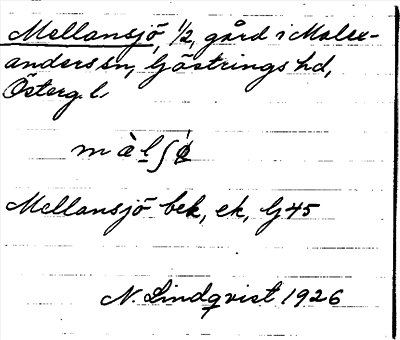 Mellansjö, 1/2, gård i Malex-
anders sn, Göstrings hd,
Österg. l.
Mellansjö bek, ek, G 45
N. Lindqvist 1926